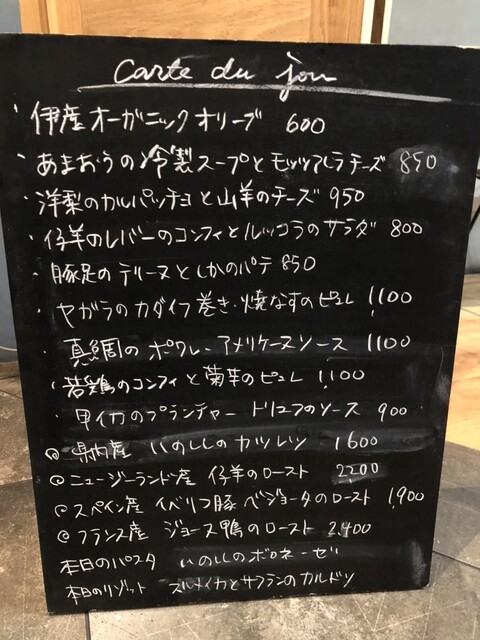 Carte du jour
・伊産オーガニックオリーブ 600
・あまおうの冷製スープとモッツアレラチーズ 850
・洋梨のカルパッチョと山羊のチーズ 950
・仔羊のレバーのコンフィとルッコラのサラダ 800
・豚足のテリーヌとしかのパテ 850
・ヤガラのカダイフ巻き・焼なすのピュレ 1,100
・真鯛のポワレ アメリケーヌソース 1100
・若鶏のコンフィと菊芋のピュレ 1,100
・甲イカのプランチャー トリュフのソース 900
@県内産 いのししのカツレツ 1600
@ニュージーランド産 仔羊のロースト 2200
@スペイン産 イベリコ豚 ベジョータのロースト 1,900
@フランス産 ジョース鴨のロースト 2,400
本日のパスタ いのししのボロネーゼ
本日のリゾット ズメイカとサフランのカルドソ